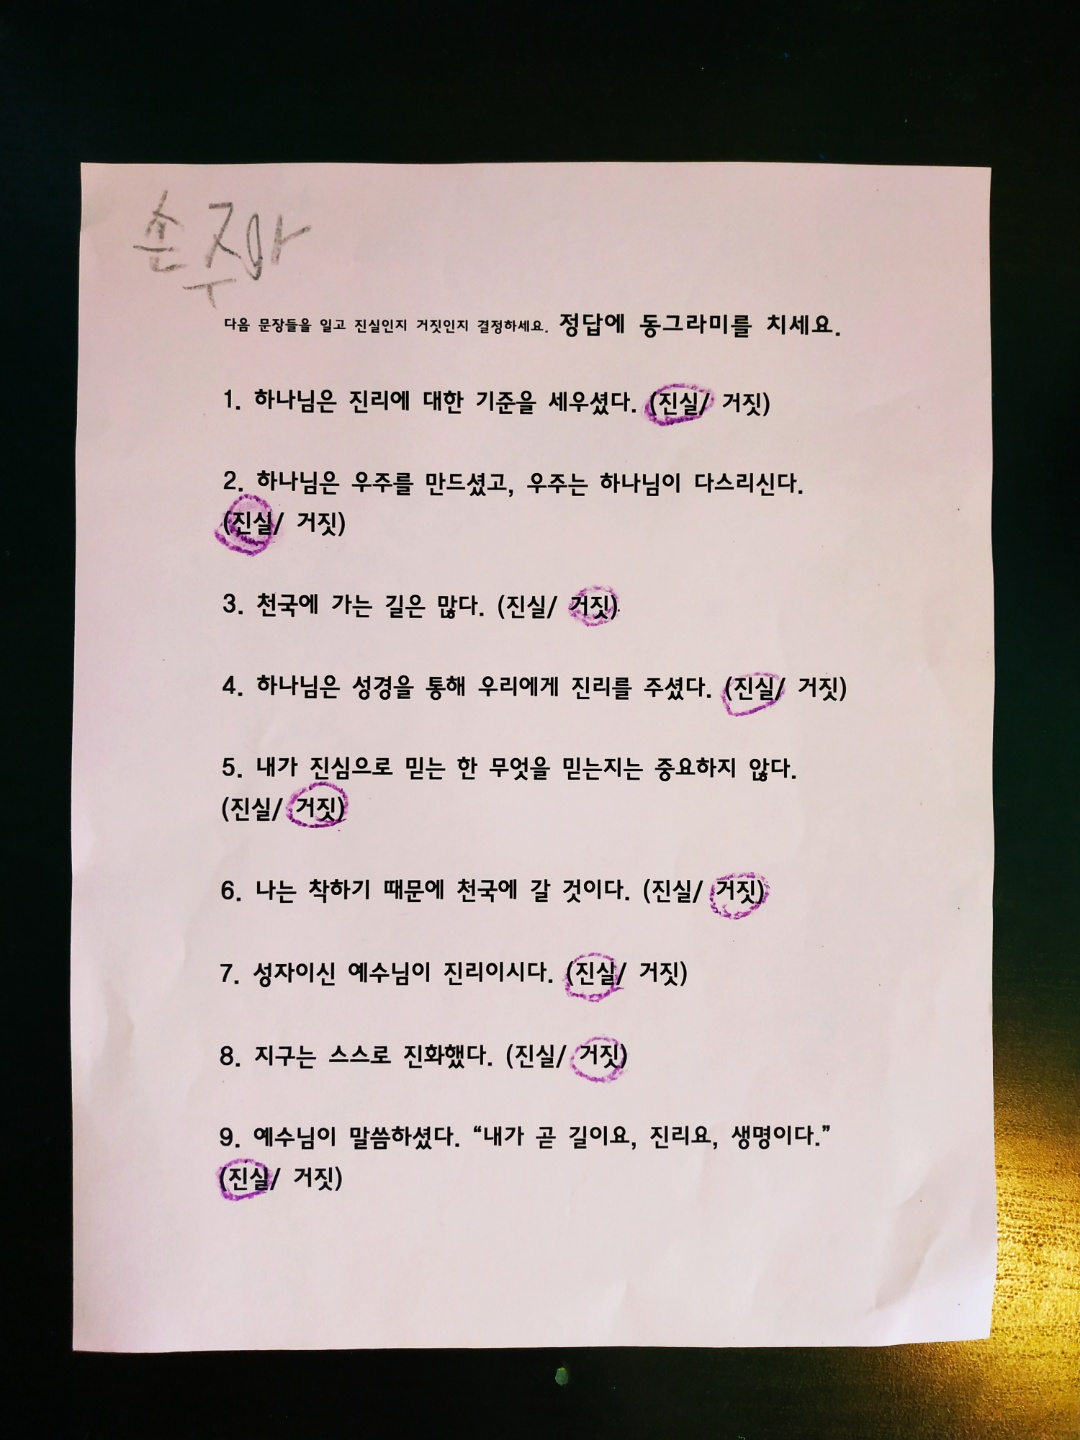 손주마
다음 문장들을 일고 진실인지 거짓인지 결정하세요. 정답에 동그라미를 치세요.
1. 하나님은 진리에 대한 기준을 세우셨다. (진실/ 거짓)
2. 하나님은 우주를 만드셨고, 우주는 하나님이 다스리신다.
(진실/ 거짓)
3. 천국에 가는 길은 많다. (진실/ 거짓)
4. 하나님은 성경을 통해 우리에게 진리를 주셨다. (진실/ 거짓)
5. 내가 진심으로 믿는 한 무엇을 믿는지는 중요하지 않다.
(진실/ 거짓)
6. 나는 착하기 때문에 천국에 갈 것이다. (진실/ 거짓)
7. 성자이신 예수님이 진리이시다. (진실/ 거짓)
8. 지구는 스스로 진화했다. (진실/ 거짓)
9. 예수님이 말씀하셨다. “내가 곧 길이요, 진리요, 생명이다.”
(진실/ 거짓)